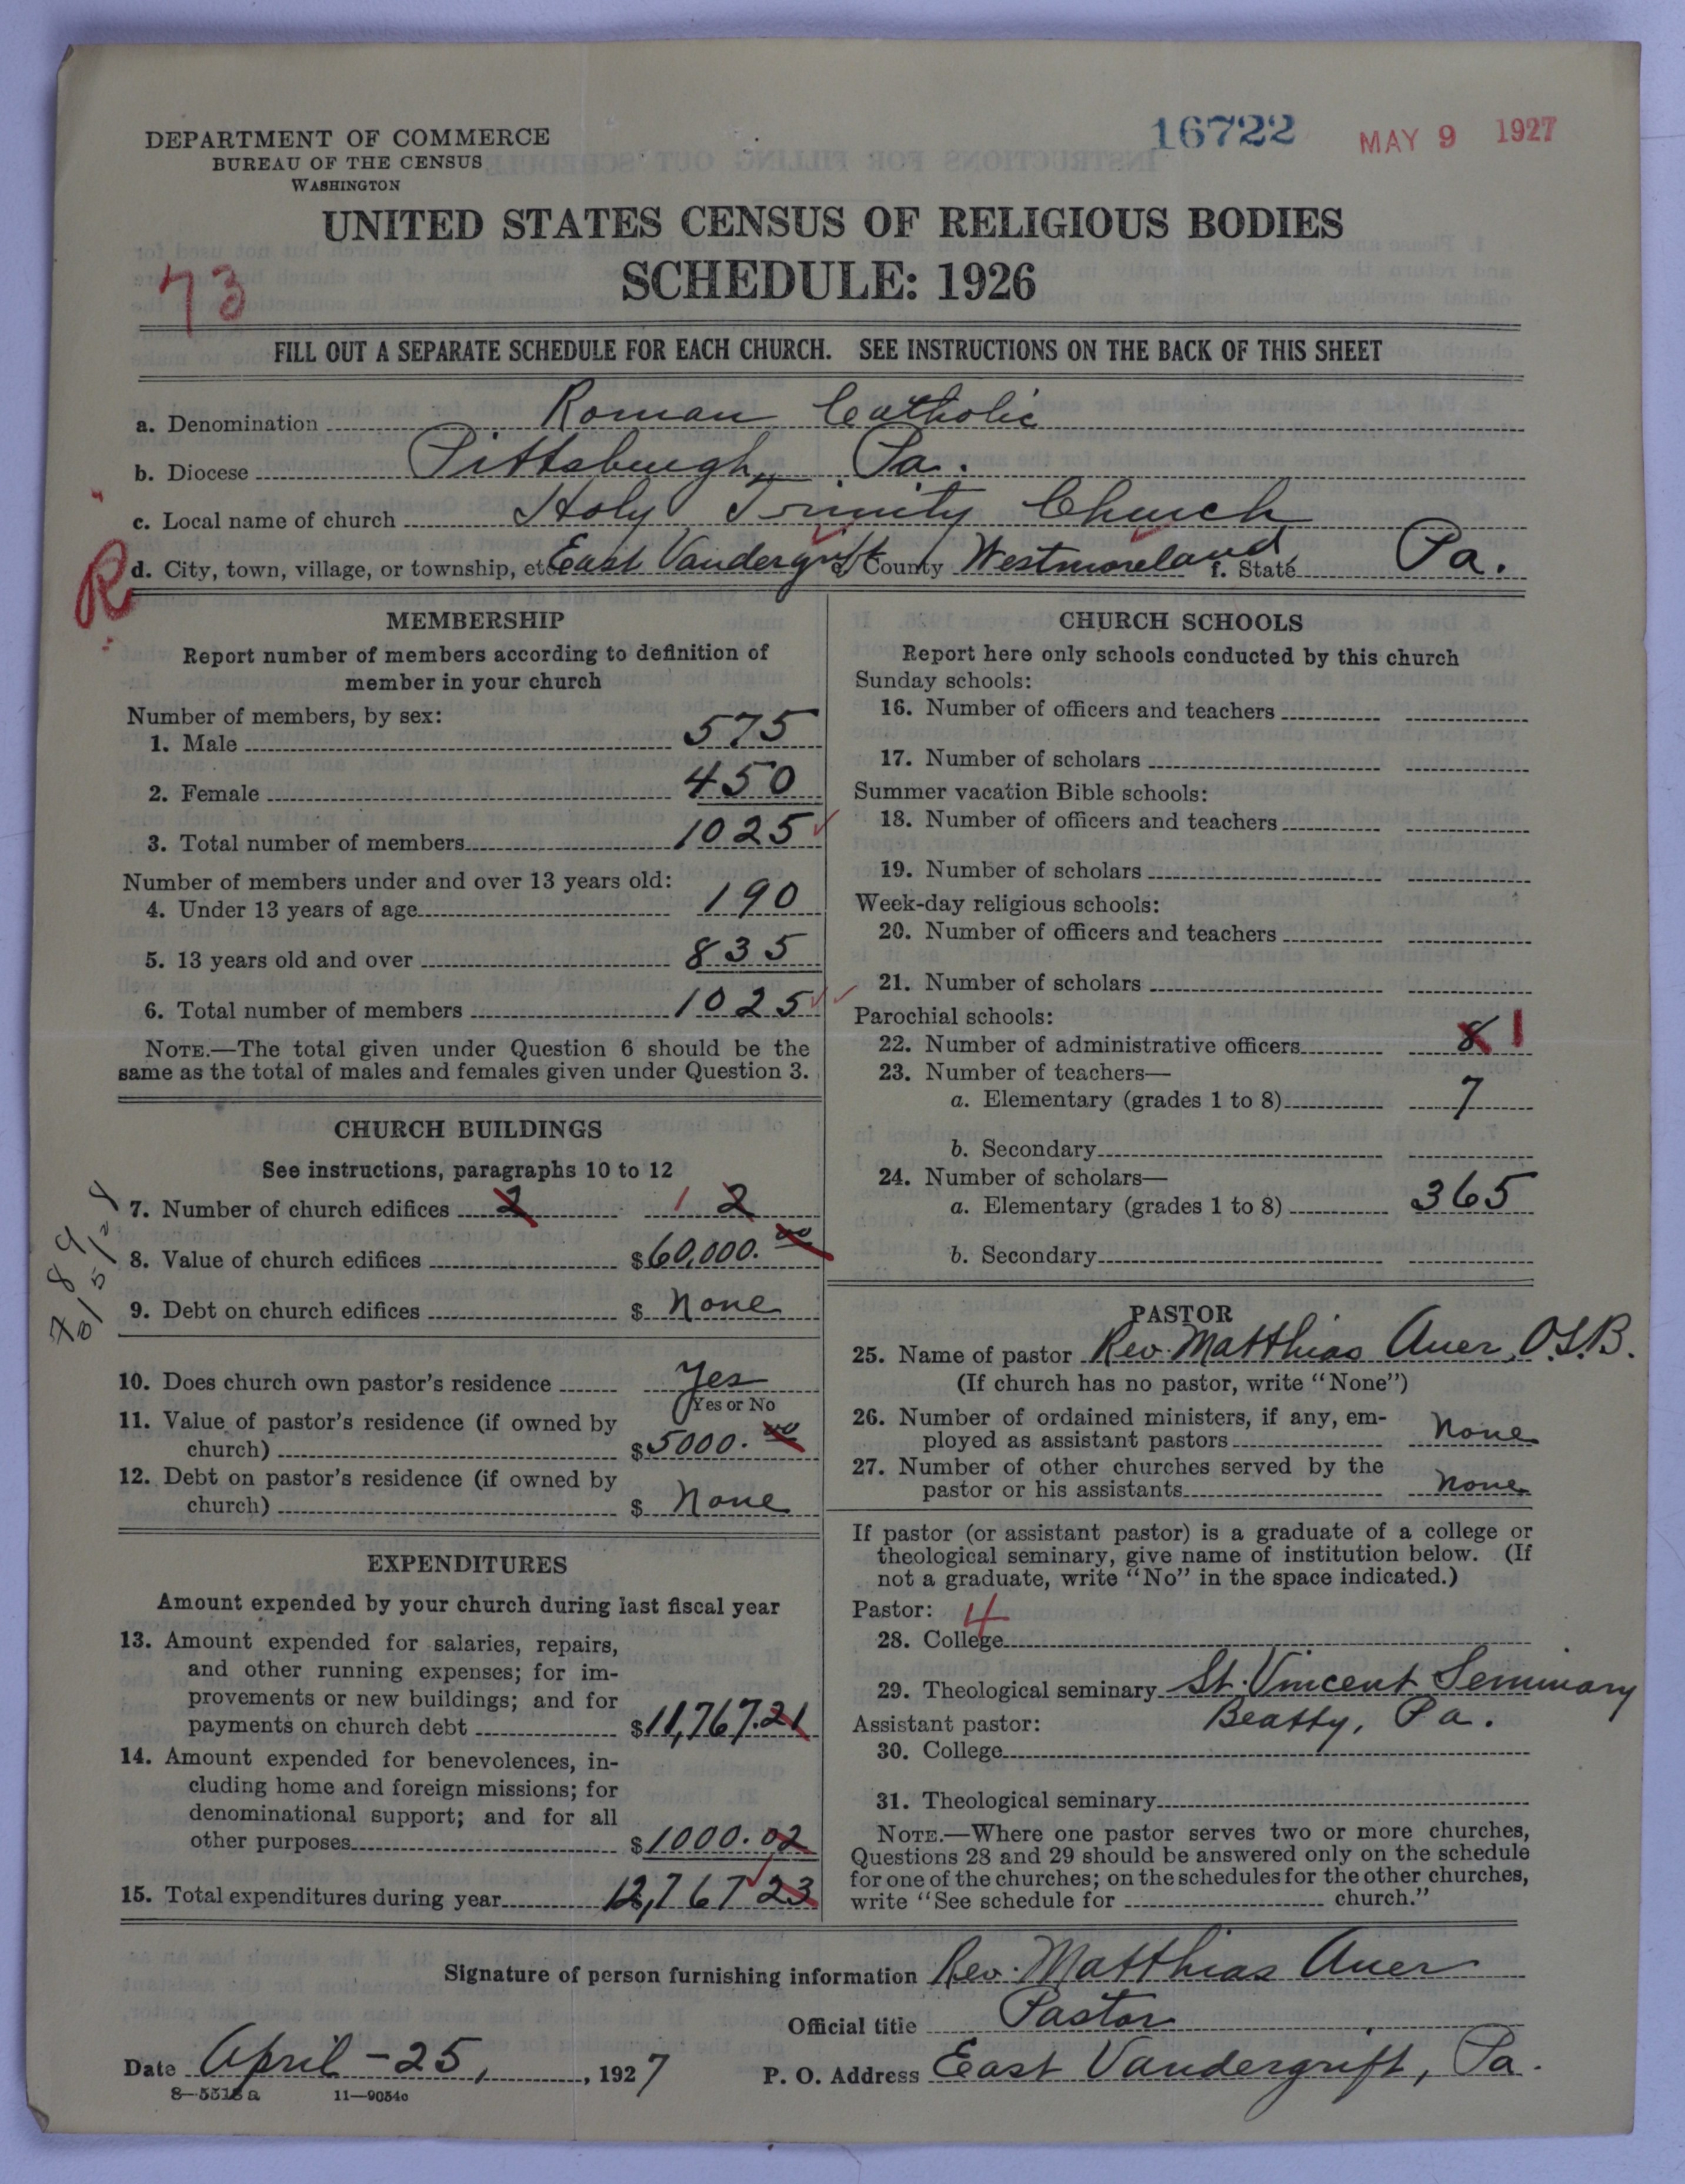 DEPARTMENT OF COMMERCE
BUREAU OF THE CENSUS
WASHINGTON
16722
MAY 9 1927
UNITED STATES CENSUS OF RELIGIOUS BODIES
SCHEDULE: 1926
73
FILL OUT A SEPARATE SCHEDULE FOR EACH CHURCH. SEE INSTRUCTIONS ON THE BACK OF THIS SHEET
a. Denomination Roman Catholic
b. Diocese Pittsburgh, Pa.
c. Local name of church Holy Trinity Church
R
d. City, town, village, or township, etc. East Vandergrift County Westmoreland, f. State Pa.
MEMBERSHIP
Report number of members according to definition of
member in your church
Number of members, by sex:
1. Male 575
2. Female 450
3. Total number of members 1025
Number of members under and over 13 years old:
4. Under 13 years of age 190
5. 13 years old and over 835
6. Total number of members 1025
NOTE.—The total given under Question 6 should be the
same as the total of males and females given under Question 3.
CHURCH BUILDINGS
See instructions, paragraphs 10 to 12
7. Number of church edifices 2 1 2
8. Value of church edifices $60,000.00
9. Debt on church edifices $ None
10. Does church own pastor's residence Yes
Yes or No
11. Value of pastor's residence (if owned by
church) $5000.00
12. Debt on pastor's residence (if owned by
church) $ None
EXPENDITURES
Amount expended by your church during last fiscal year
13. Amount expended for salaries, repairs,
and other running expenses; for im-
provements or new buildings; and for
payments on church debt $11,767.21
14. Amount expended for benevolences, in-
cluding home and foreign missions; for
denominational support; and for all
other purposes $1000.02
15. Total expenditures during year 12,767 23
CHURCH SCHOOLS
Report here only schools conducted by this church
Sunday schools:
16. Number of officers and teachers
17. Number of scholars
Summer vacation Bible schools:
18. Number of officers and teachers
19. Number of scholars
Week-day religious schools:
20. Number of officers and teachers
21. Number of scholars
Parochial schools:
22. Number of administrative officers 8 1
23. Number of teachers—
a. Elementary (grades 1 to 8) 7
b. Secondary
24. Number of scholars—
a. Elementary (grades 1 to 8) 365
b. Secondary
PASTOR
25. Name of pastor Rev. Matthias Auer, O.S.B.
(If church has no pastor, write "None")
26. Number of ordained ministers, if any, em-
ployed as assistant pastors None
27. Number of other churches served by the
pastor or his assistants None
If pastor (or assistant pastor) is a graduate of a college or
theological seminary, give name of institution below. (If
not a graduate, write "No" in the space indicated.)
Pastor: 4
28. College
29. Theological seminary St. Vincent Seminary
Assistant pastor: Beatty, Pa.
30. College
31. Theological seminary
NOTE.—Where one pastor serves two or more churches,
Questions 28 and 29 should be answered only on the schedule
for one of the churches; on the schedules for the other churches,
write "See schedule for church."
Signature of person furnishing information Rev. Matthias Auer
Official title Pastor
Date April - 25, , 1927 P. O. Address East Vandergrift, Pa.
8—5518a 11—9054c